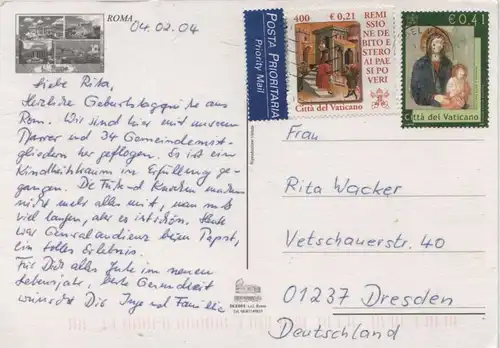 ROMA
04.02.04
Liebe Rita,
Herzliche Geburtstagsgrüße aus
Rom. Wir sind hier mit unserem
Pfarrer und 34 Gemeindemit-
gliedern her geflogen. Es ist ein
Kindheitstraum in Erfüllung ge-
gangen. Die Füße und Knochen machen
nicht mehr alles mit, man muß
viel laufen, aber es ist schön. Heute
war Generalaudienz beim Papst,
ein tolles Erlebnis.
Für Dich alles Gute im neuen
Lebensjahr, beste Gesundheit
wünscht Dir Inge und Familie
POSTA PRIORITARIA
Priority Mail
400 € 0,21
REMI
SSIONE
DEBITO E
STERO
AI PAE
SI PO
VERI
Città del Vaticano
€ 0,41
Città del Vaticano
Frau
Rita Wacker
Vetschauerstr. 40
01237 Dresden
Deutschland